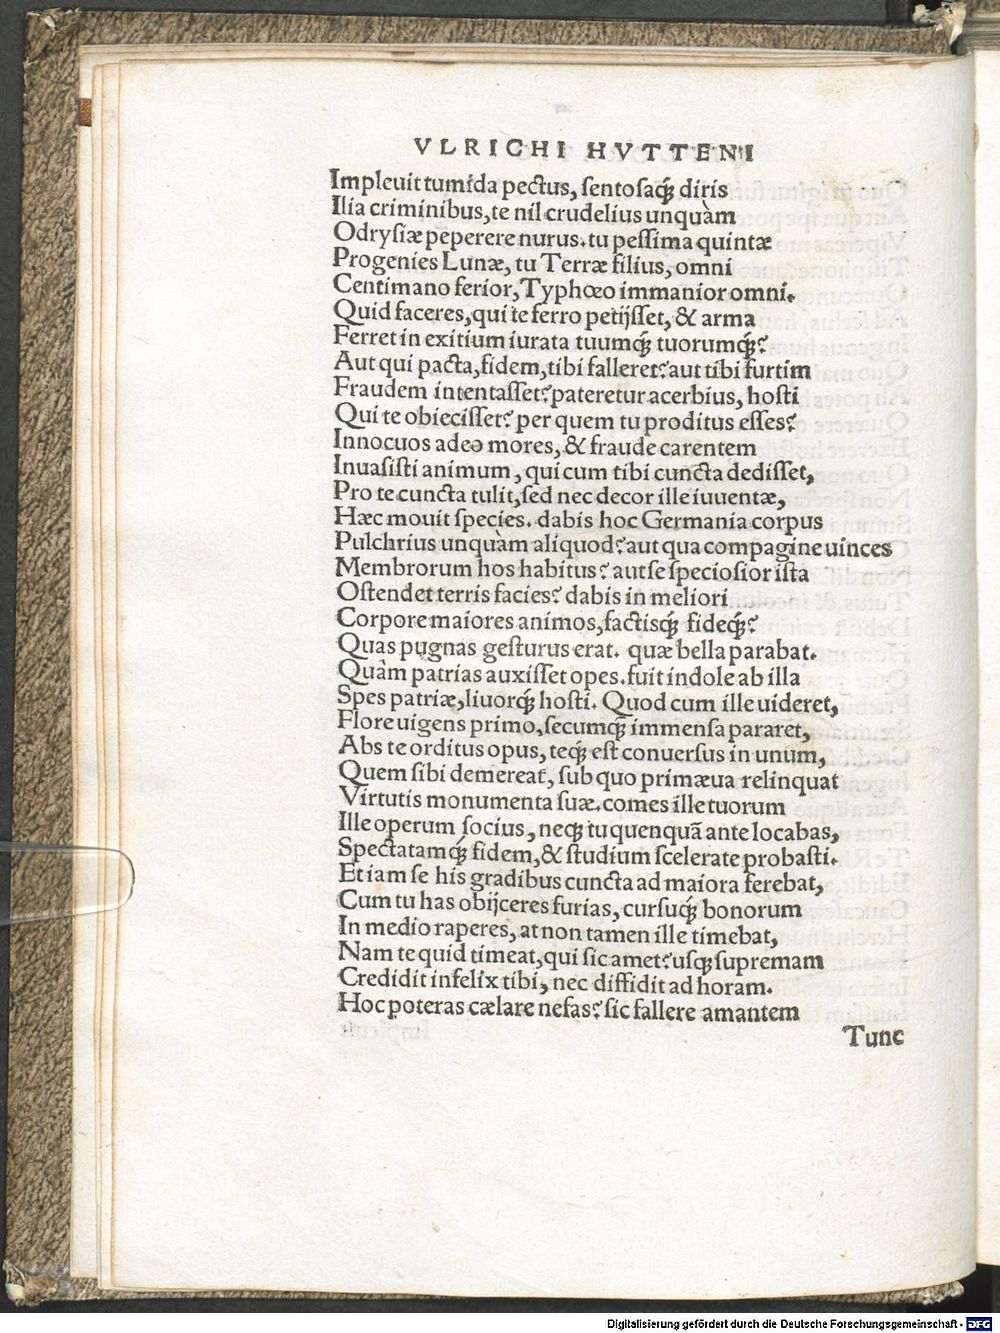 VLRICHI HVTTENI
Impleuit tumida pectus, sentosaq́ꝫ diris
Ilia criminibus, te nil crudelius unquàm
Odrysiæ peperere nurus. tu pessima quintæ
Progenies Lunæ, tu Terræ filius, omni
Centimano ferior, Typhœo immanior omni.
Quid faceres, qui te ferro petijsset, & arma
Ferret in exitium iurata tuumq́ꝫ tuorumq́ꝫ?
Aut qui pacta, fidem, tibi falleret? aut tibi furtim
Fraudem intentasset? pateretur acerbius, hosti
Qui te obiecisset? per quem tu proditus esses?
Innocuos adeo mores, & fraude carentem
Inuasisti animum, qui cum tibi cuncta dedisset,
Pro te cuncta tulit, sed nec decor ille iuuentæ,
Hæc mouit species. dabis hoc Germania corpus
Pulchrius unquàm aliquod? aut qua compagine uinces
Membrorum hos habitus? aut se speciosior ista
Ostendet terris facies? dabis in meliori
Corpore maiores animos, factisq́ꝫ fideq́ꝫ?
Quas pugnas gesturus erat. quæ bella parabat.
Quàm patrias auxisset opes. fuit indole ab illa
Spes patriæ, liuorq́ꝫ hosti. Quod cum ille uideret,
Flore uigens primo, secumq́ꝫ immensa pararet,
Abs te orditus opus, teq́ꝫ est conuersus in unum,
Quem sibi demereat, sub quo primæua relinquat
Virtutis monumenta suæ. comes ille tuorum
Ille operum socius, neqꝫ tu quenquā ante locabas,
Spectatamq́ꝫ fidem, & studium scelerate probasti.
Et iam se his gradibus cuncta ad maiora ferebat,
Cum tu has obijceres furias, cursuq́ꝫ bonorum
In medio raperes, at non tamen ille timebat,
Nam te quid timeat, qui sic amet? usqꝫ supremam
Credidit infelix tibi, nec diffidit ad horam.
Hoc poteras cælare nefas? sic fallere amantem
Tunc
Digitalisierung gefördert durch die Deutsche Forschungsgemeinschaft - DFG